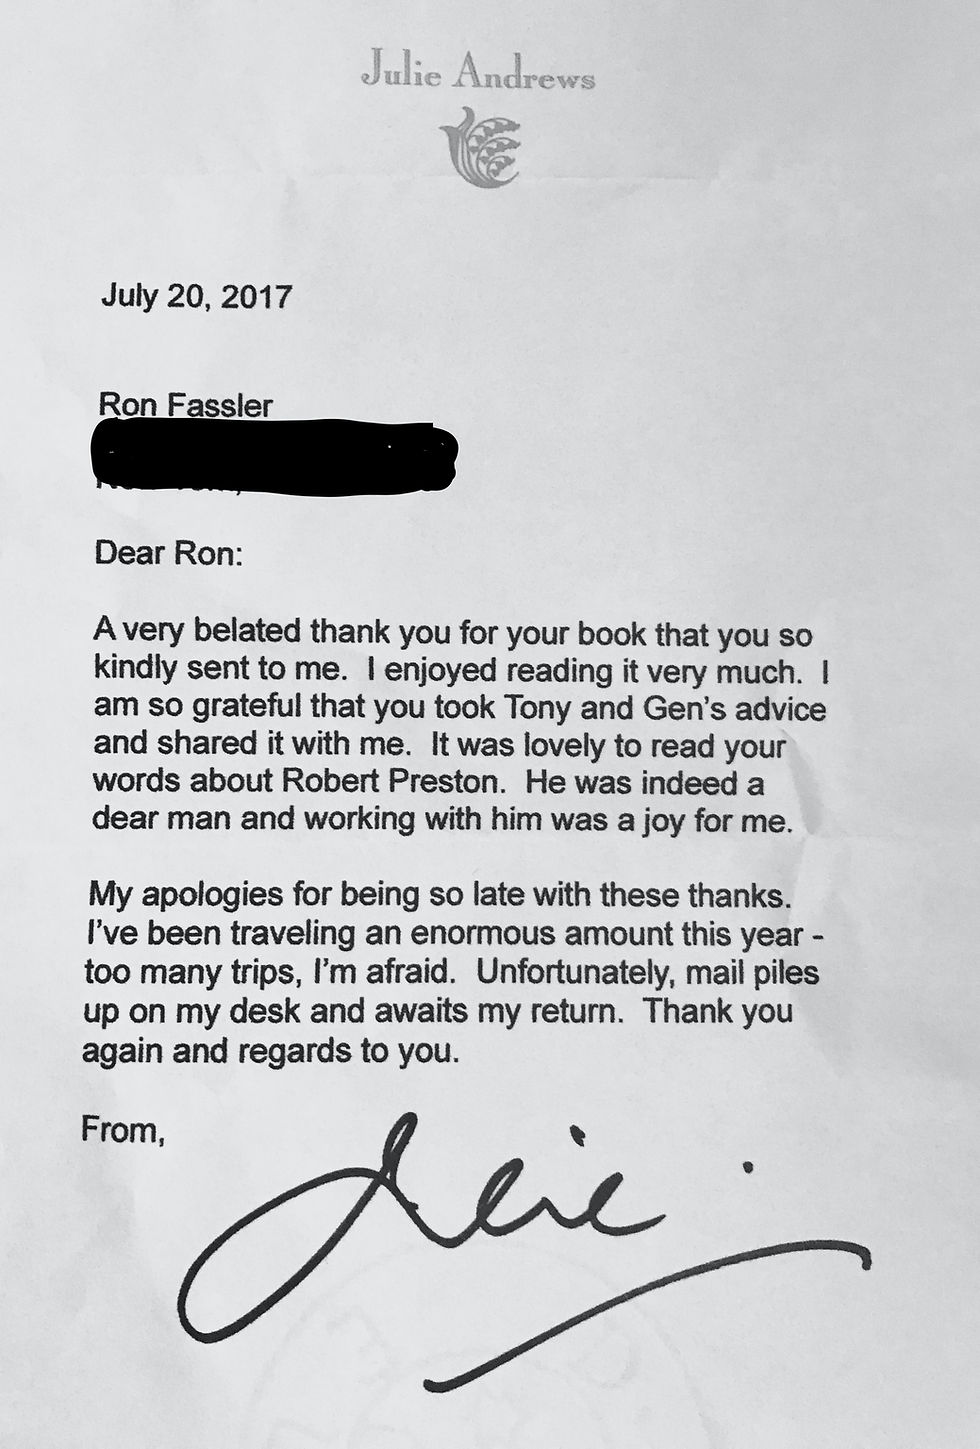 Julie Andrews
July 20, 2017
Ron Fassler
Dear Ron:
A very belated thank you for your book that you so
kindly sent to me.  I enjoyed reading it very much.  I
am so grateful that you took Tony and Gen's advice
and shared it with me.  It was lovely to read your
words about Robert Preston.  He was indeed a
dear man and working with him was a joy for me.
My apologies for being so late with these thanks.
I've been traveling an enormous amount this year -
too many trips, I'm afraid.  Unfortunately, mail piles
up on my desk and awaits my return.  Thank you
again and regards to you.
From,
Julie